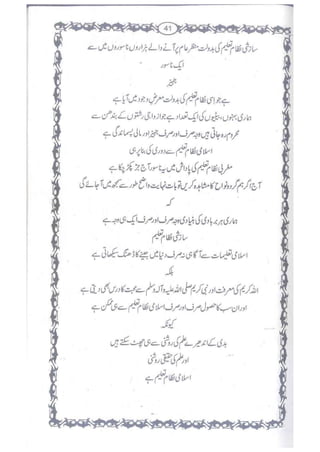 41
سازشی نظام تعلیم کی بدولت منظر عام پر آنے والے ہزاروں ناسوروں میں سے
ایک ناسور
جہیز
ہے جو اسی نظام تعلیم کی بدولت معرض وجود میں آیا ہے
ہماری بہنوں، بیٹیوں کی ایک تعداد ہے جو ازدواجی رشتوں کے بندھن سے
محروم رہ جاتی ہیں وجہ صرف اور صرف جہیز اور مالی پسماندگی ہے
اسلامی نظام تعلیم سے دوری کی بنا پر ہی
مغربی نظام تعلیم کی پاداش میں یہ ناسور آج جڑ پکڑ چکا ہے
آج اگر ہم گردونواح کا مشاہدہ کریں تو بات نہایت واضح طور سے سمجھ میں آ جائے گی
کہ
ہماری ہر بربادی کی بنیادی وجہ صرف اور صرف ایک ہی وجہ ہے
سازشی نظام تعلیم
اسلامی تعلیمات سے آگاہی نہ صرف دنیا میں جینے کا ڈھنگ سیکھاتی ہے
بلکہ
اللہ کریم کی معرفت اور نبی کریم صلی اللہ علیہ وآلہ وسلم سے محبت کا درس بھی دیتی ہے
اور ان سب کا حصول صرف اور صرف اسلامی نظام تعلیم سے ہی ممکن ہے
کیونکہ
بدی کے اندھیرے علم کی روشنی سے ہی چھٹ سکتے ہیں
اور علم کی حقیقی روشنی
اسلامی نظام تعلیم ہے